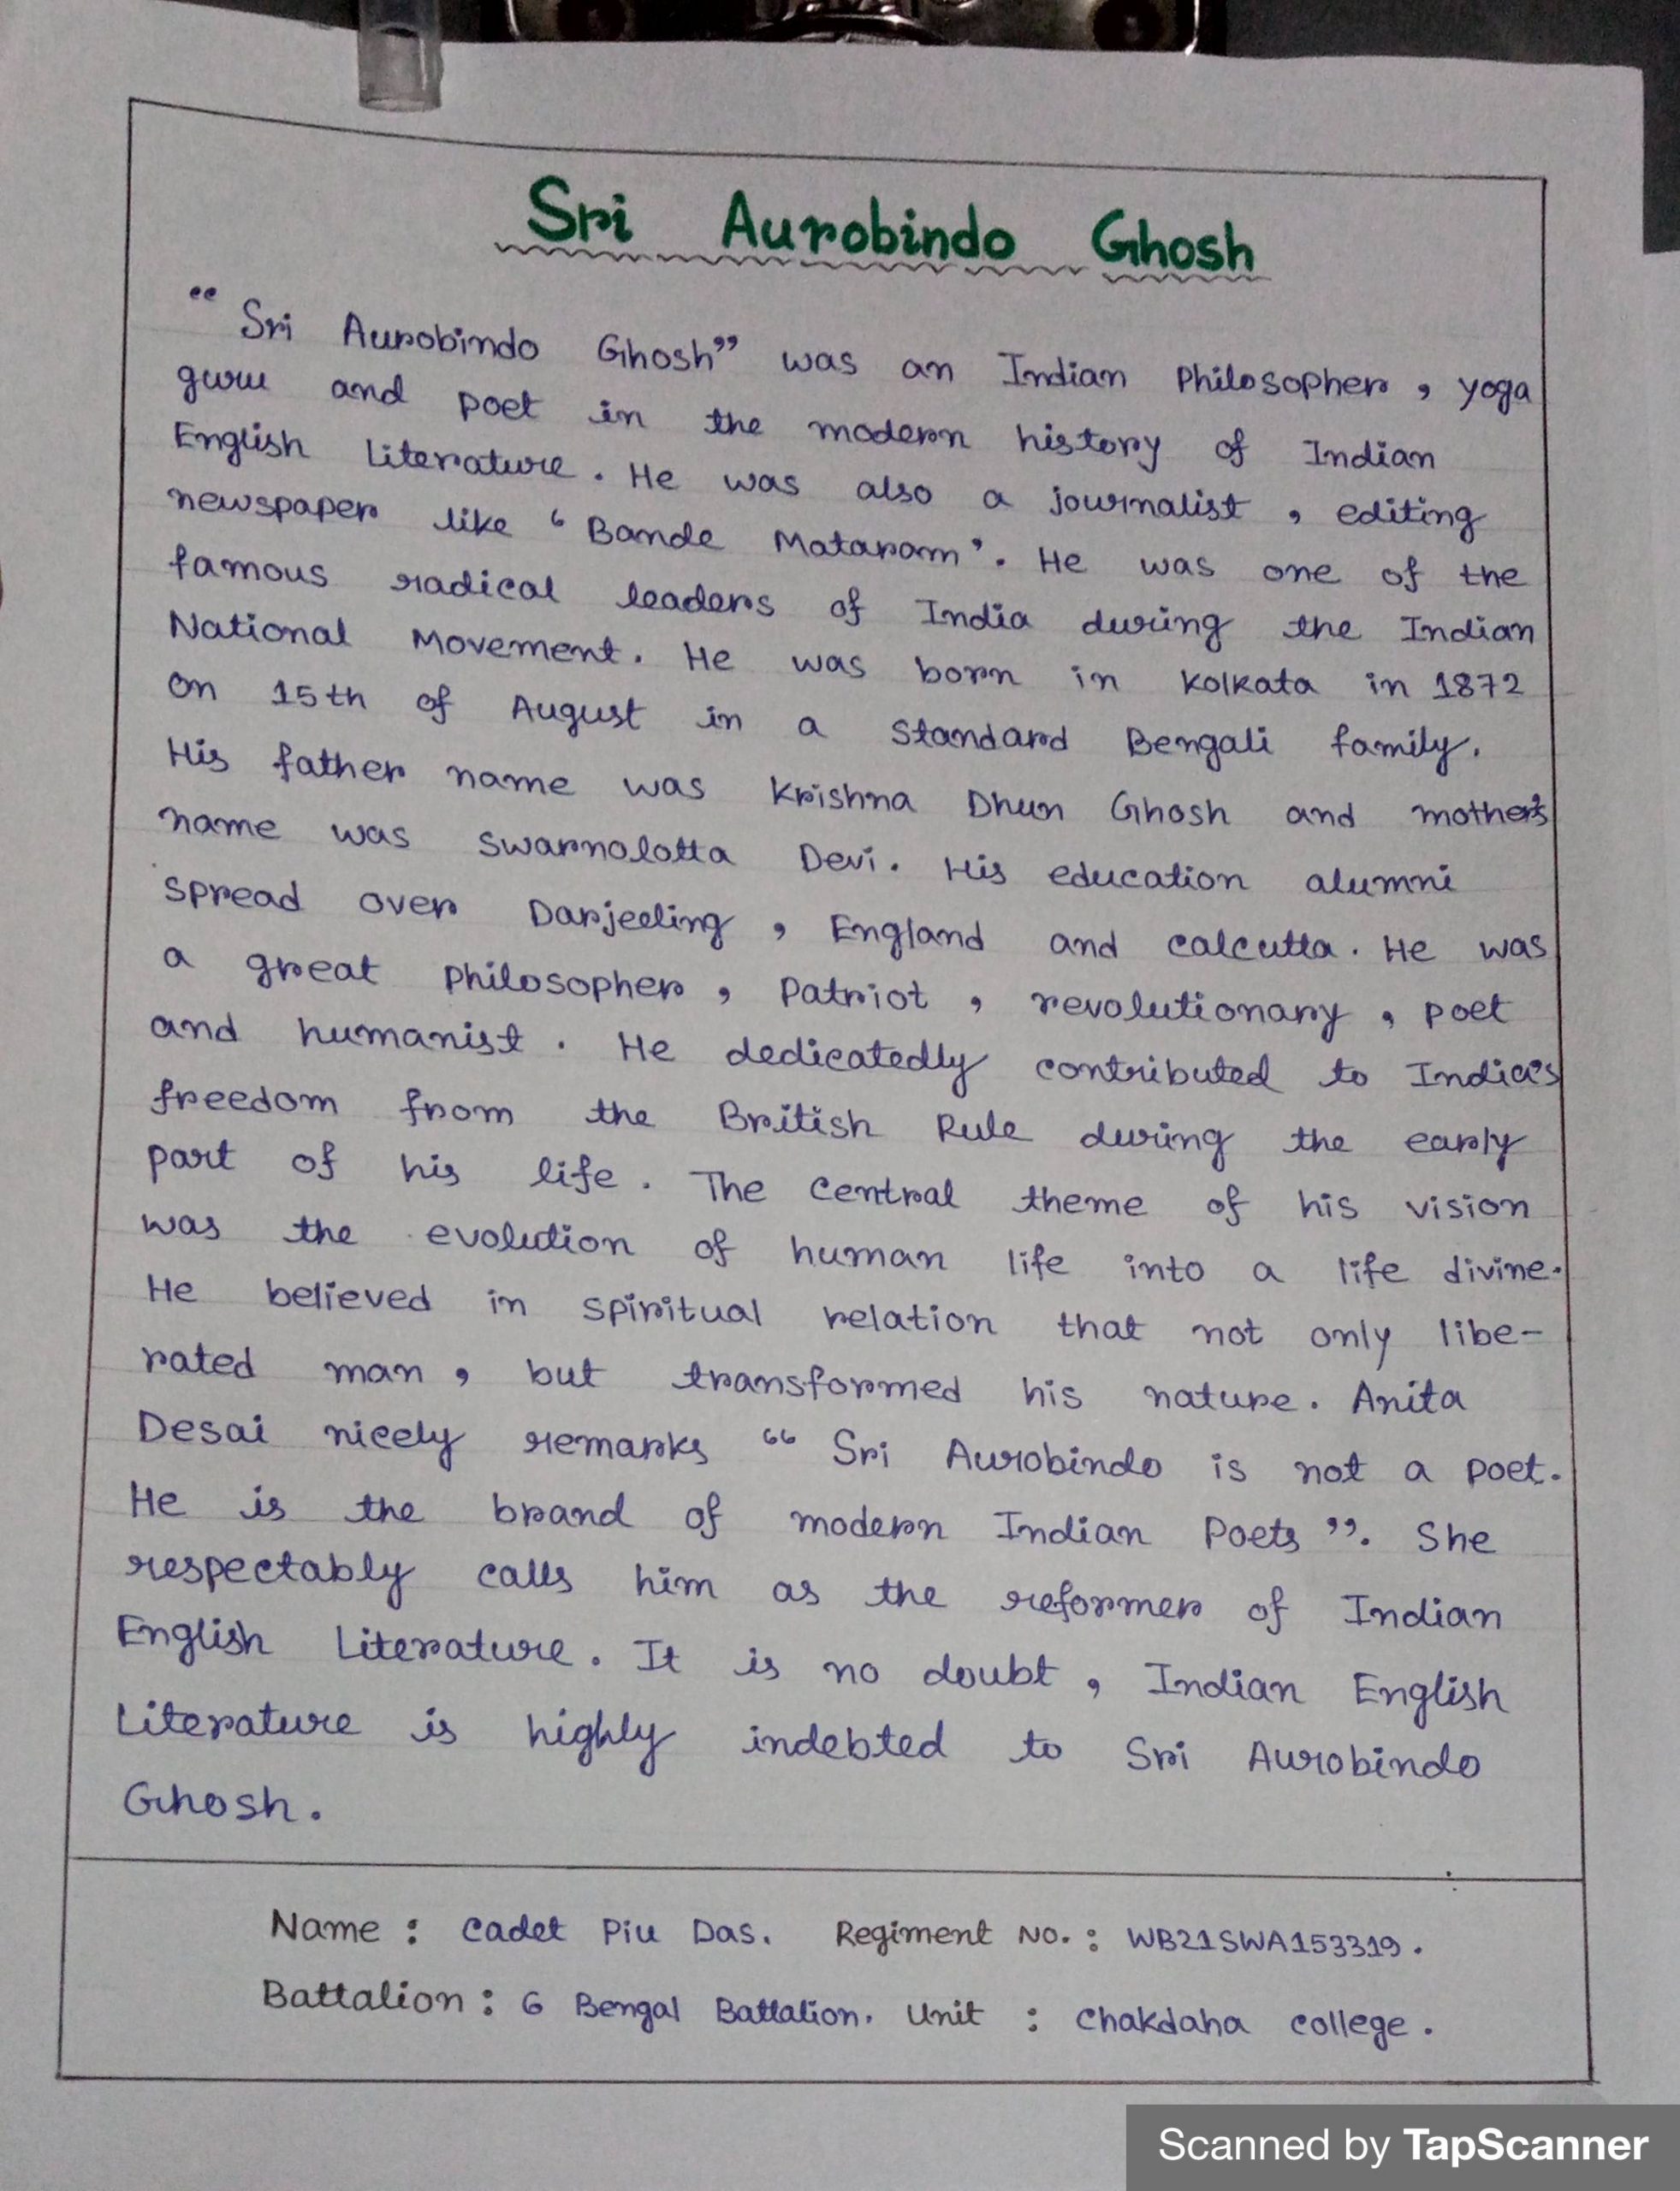 Sri Aurobindo Ghosh
“ Sri Aurobindo Ghosh” was an Indian Philosopher, yoga
guru and poet in the modern history of Indian
English Literature. He was also a journalist, editing
newspaper like ‘Bande Mataram’. He was one of the
famous radical leaders of India during the Indian
National Movement. He was born in Kolkata in 1872
on 15th of August in a standard Bengali family.
His father name was Krishna Dhun Ghosh and mother's
name was Swarnolotta Devi. His education alumni
spread over Darjeeling, England and Calcutta. He was
a great philosopher, patriot, revolutionary, poet
and humanist. He dedicatedly contributed to India's
freedom from the British Rule during the early
part of his life. The central theme of his vision
was the evolution of human life into a life divine.
He believed in spiritual relation that not only libe-
rated man, but transformed his nature. Anita
Desai nicely remarks “ Sri Aurobindo is not a poet.
He is the brand of modern Indian Poets ”. She
respectably calls him as the reformer of Indian
English Literature. It is no doubt, Indian English
Literature is highly indebted to Sri Aurobindo
Ghosh.
Name : Cadet Piu Das. Regiment No. : WB21SWA153319.
Battalion : 6 Bengal Battalion. Unit : Chakdaha college.
Scanned by TapScanner